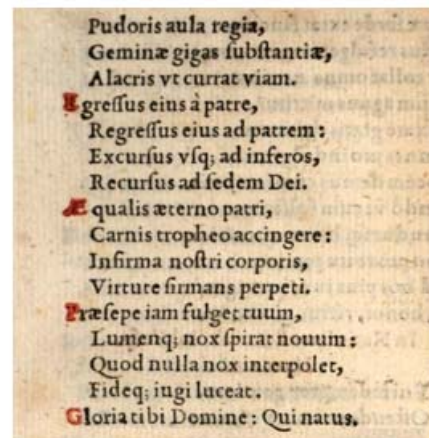 Pudoris aula regia,
Geminæ gigas ſubſtantiæ,
Alacris vt currat viam.
Egreſſus eius à patre,
Regreſſus eius ad patrem:
Excurſus vſq; ad inferos,
Recurſus ad ſedem Dei.
Æqualis æterno patri,
Carnis tropheo accingere:
Infirma noſtri corporis,
Virtute firmans perpeti.
Præſepe iam fulget tuum,
Lumenq; nox ſpirat nouum:
Quod nulla nox interpolet,
Fideq; iugi luceat.
Gloria tibi Domine: Qui natus.